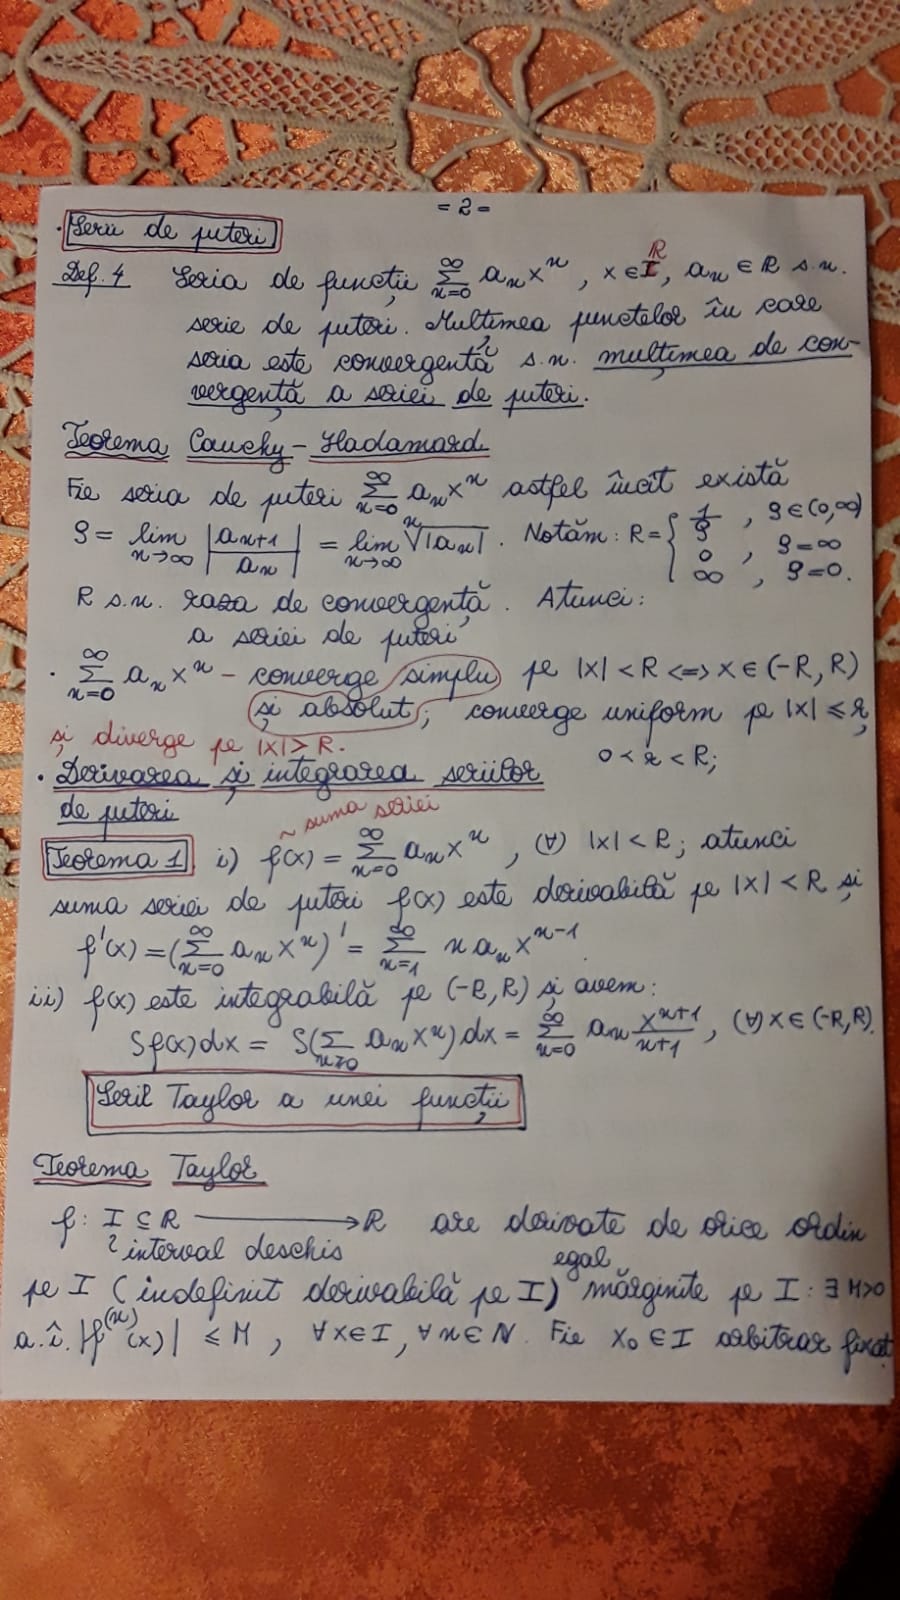 = 2 =
. Serii de puteri
Def. 4 Seria de funcții ∑_{n=0}^{∞} a_n x^n , x ∈ I R, a_n ∈ R s.n.
serie de puteri. Mulțimea punctelor în care
seria este convergentă s.n. mulțimea de con-
vergență a seriei de puteri.
Teorema Cauchy – Hadamard
Fie seria de puteri ∑_{n=0}^{∞} a_n x^n astfel încît există
ρ = lim_{n→∞} |a_{n+1}/a_n| = lim_{n→∞} ⁿ√|a_n| . Notăm : R = { 1/ρ , ρ∈(0,∞)
0 , ρ=∞
∞ , ρ=0.
R s.n. raza de convergență . Atunci :
a seriei de puteri
· ∑_{n=0}^{∞} a_n x^n – converge simplu pe |x| < R <=> x ∈ (-R, R)
și absolut ; converge uniform pe |x| ⩽ r,
și diverge pe |x| > R. 0 < r < R;
· Derivarea și integrarea seriilor
de puteri
~ suma seriei
Teorema 1 i) f(x) = ∑_{n=0}^{∞} a_n x^n , (∀) |x| < R ; atunci
suma seriei de puteri f(x) este derivabilă pe |x| < R și
f'(x) = (∑_{n=0}^{∞} a_n x^n)' = ∑_{n=1}^{∞} n a_n x^{n-1}.
ii) f(x) este integrabilă pe (-R, R) și avem :
∫f(x)dx = ∫(∑_{n≥0} a_n x^n) dx = ∑_{n=0}^{∞} a_n x^{n+1}/(n+1) , (∀) x ∈ (-R, R).
Serii Taylor a unei funcții
Teorema Taylor
f : I ⊆ R ⟶ R are derivate de orice ordin
interval deschis egal
pe I ( indefinit derivabilă pe I) mărginite pe I : ∃ M>0
a.î. |f^{(n)}(x)| ⩽ M , ∀ x∈I , ∀ n ∈ N. Fie x_0 ∈ I arbitrar fixat